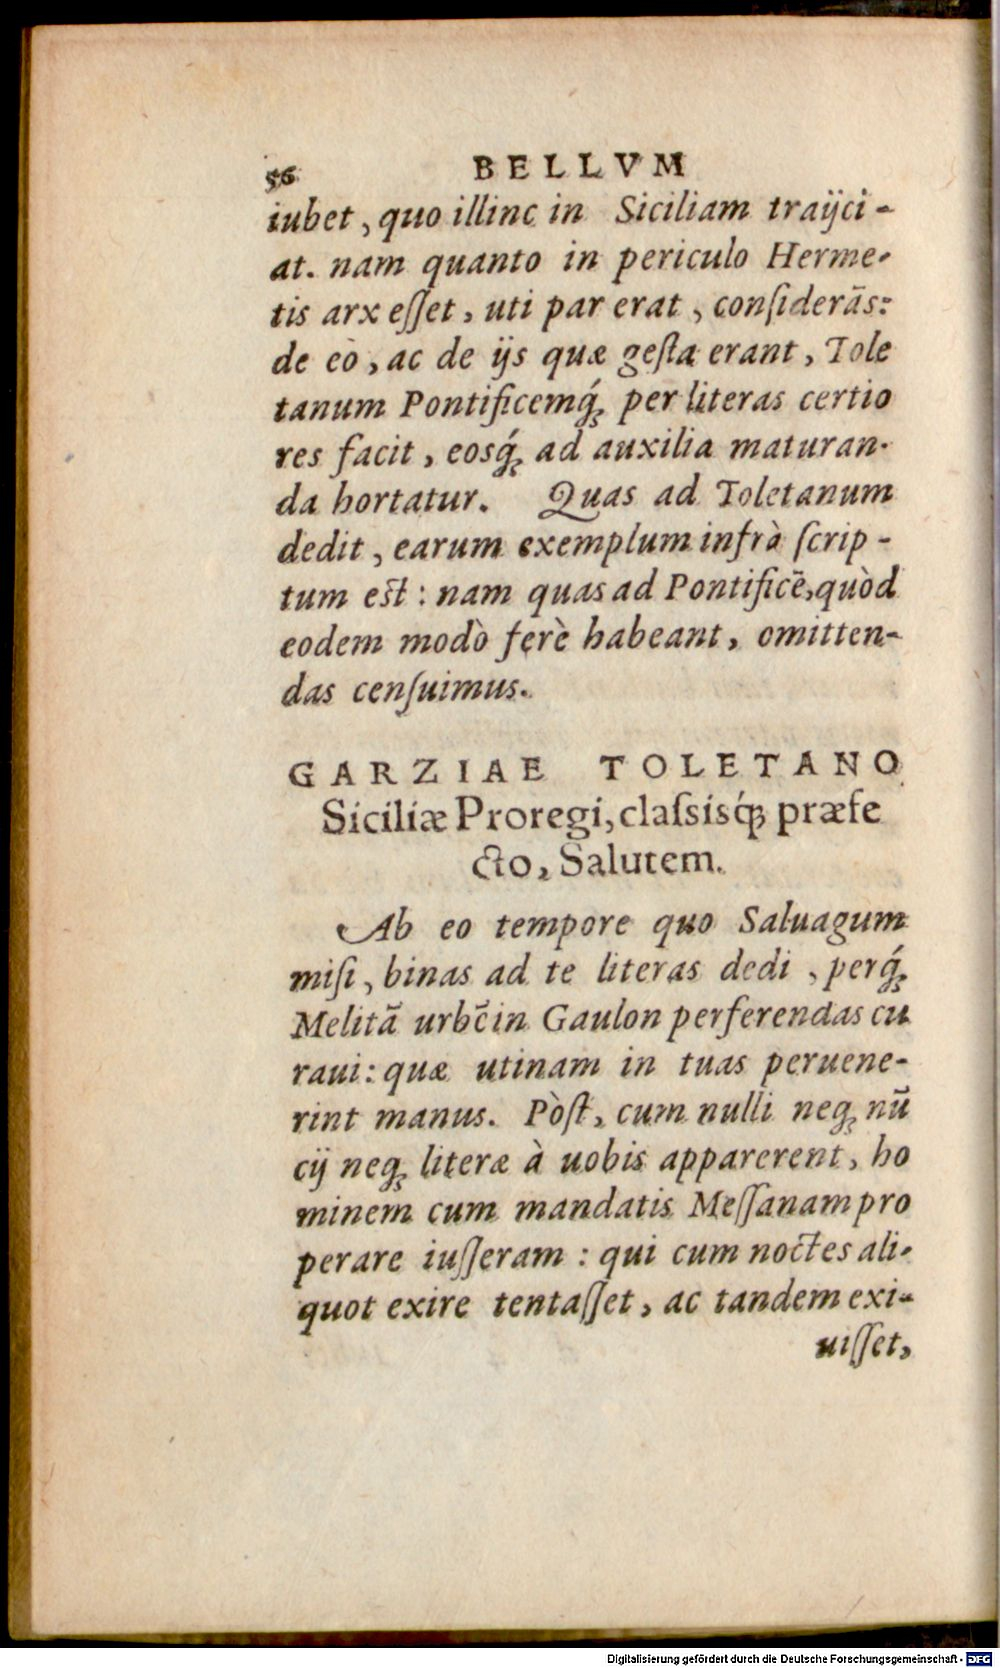 56 BELLVM
iubet, quo illinc in Siciliam traijci-
at. nam quanto in periculo Herme-
tis arx eſſet, uti par erat, conſiderās:
de eò, ac de ijs quæ geſta erant, Tole
tanum Pontificemq́ꝫ per literas certio
res facit, eosq́ꝫ ad auxilia maturan-
da hortatur. Quas ad Toletanum
dedit, earum exemplum infrà ſcrip-
tum est: nam quas ad Pontificē, quòd
eodem modò ferè habeant, omitten-
das cenſuimus.
GARZIAE TOLETANO
Siciliæ Proregi, claſsisq́ꝫ præfe
cto, Salutem.
Ab eo tempore quo Saluagum
miſi, binas ad te literas dedi, perq́ꝫ
Melitā urbē in Gaulon perferendas cu
raui: quæ utinam in tuas peruene-
rint manus. Pòſt, cum nulli neqꝫ nū
cij neqꝫ literæ à uobis apparerent, ho
minem cum mandatis Meſſanam pro
perare iuſſeram: qui cum noctes ali-
quot exire tentaſſet, ac tandem exi-
uiſſet,
Digitalisierung gefördert durch die Deutsche Forschungsgemeinschaft - DFG